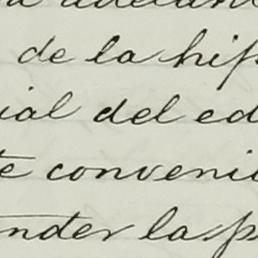 adelant
de la hip
ial del ed
te conveni
nder la p